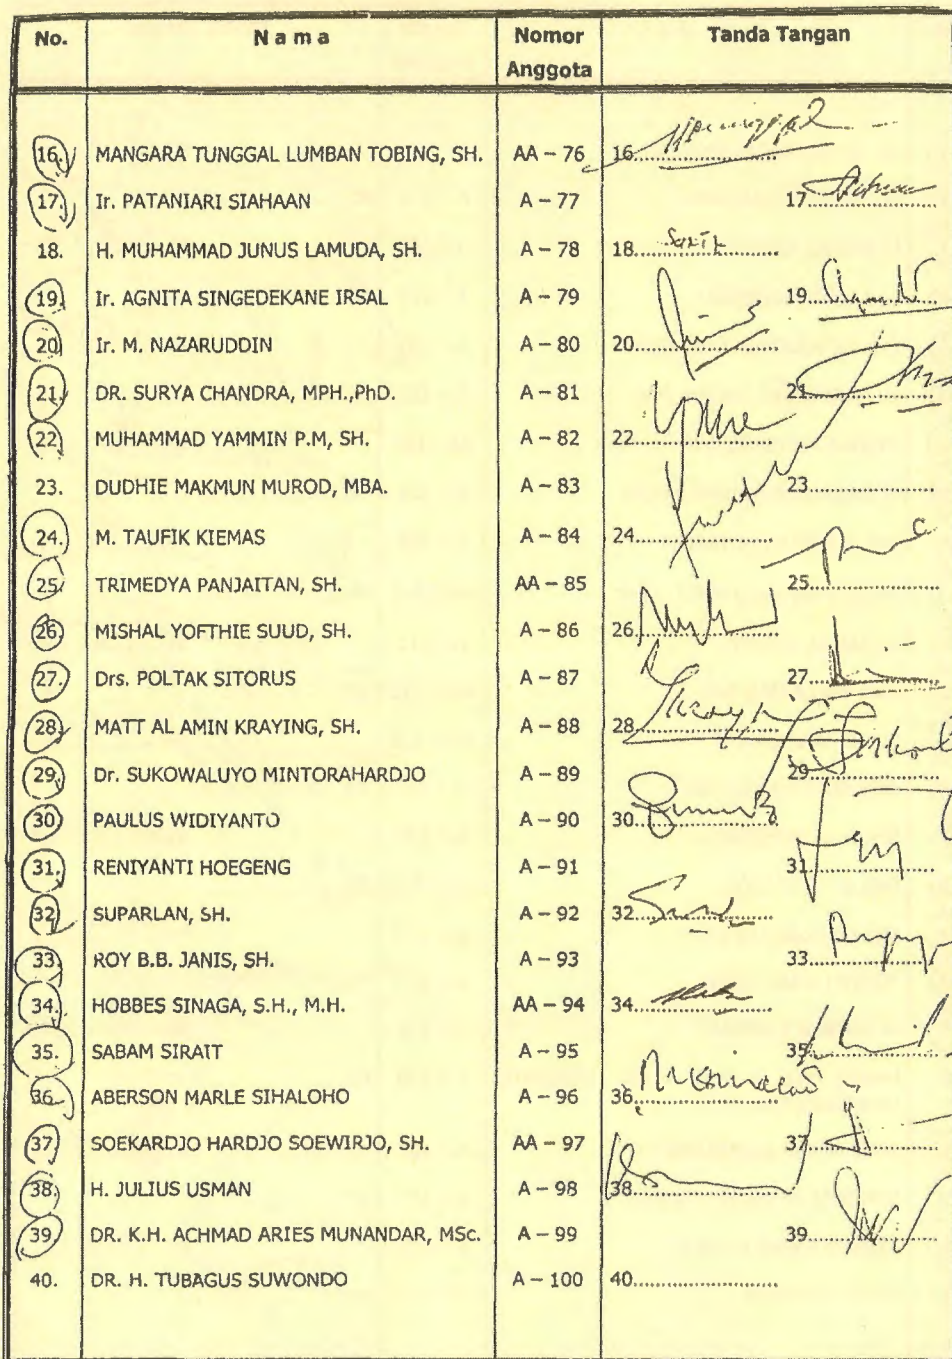 No. Nama Nomor Anggota Tanda Tangan
16. MANGARA TUNGGAL LUMBAN TOBING, SH. AA – 76 16.
17. Ir. PATANIARI SIAHAAN A – 77 17.
18. H. MUHAMMAD JUNUS LAMUDA, SH. A – 78 18.
19. Ir. AGNITA SINGEDEKANE IRSAL A – 79 19.
20. Ir. M. NAZARUDDIN A – 80 20.
21. DR. SURYA CHANDRA, MPH.,PhD. A – 81 21.
22. MUHAMMAD YAMMIN P.M, SH. A – 82 22.
23. DUDHIE MAKMUN MUROD, MBA. A – 83 23.
24. M. TAUFIK KIEMAS A – 84 24.
25. TRIMEDYA PANJAITAN, SH. AA – 85 25.
26. MISHAL YOFTHIE SUUD, SH. A – 86 26.
27. Drs. POLTAK SITORUS A – 87 27.
28. MATT AL AMIN KRAYING, SH. A – 88 28.
29. Dr. SUKOWALUYO MINTORAHARDJO A – 89 29.
30. PAULUS WIDIYANTO A – 90 30.
31. RENIYANTI HOEGENG A – 91 31.
32. SUPARLAN, SH. A – 92 32.
33. ROY B.B. JANIS, SH. A – 93 33.
34. HOBBES SINAGA, S.H., M.H. AA – 94 34.
35. SABAM SIRAIT A – 95 35.
36. ABERSON MARLE SIHALOHO A – 96 36.
37. SOEKARDJO HARDJO SOEWIRJO, SH. AA – 97 37.
38. H. JULIUS USMAN A – 98 38.
39. DR. K.H. ACHMAD ARIES MUNANDAR, MSc. A – 99 39.
40. DR. H. TUBAGUS SUWONDO A – 100 40.